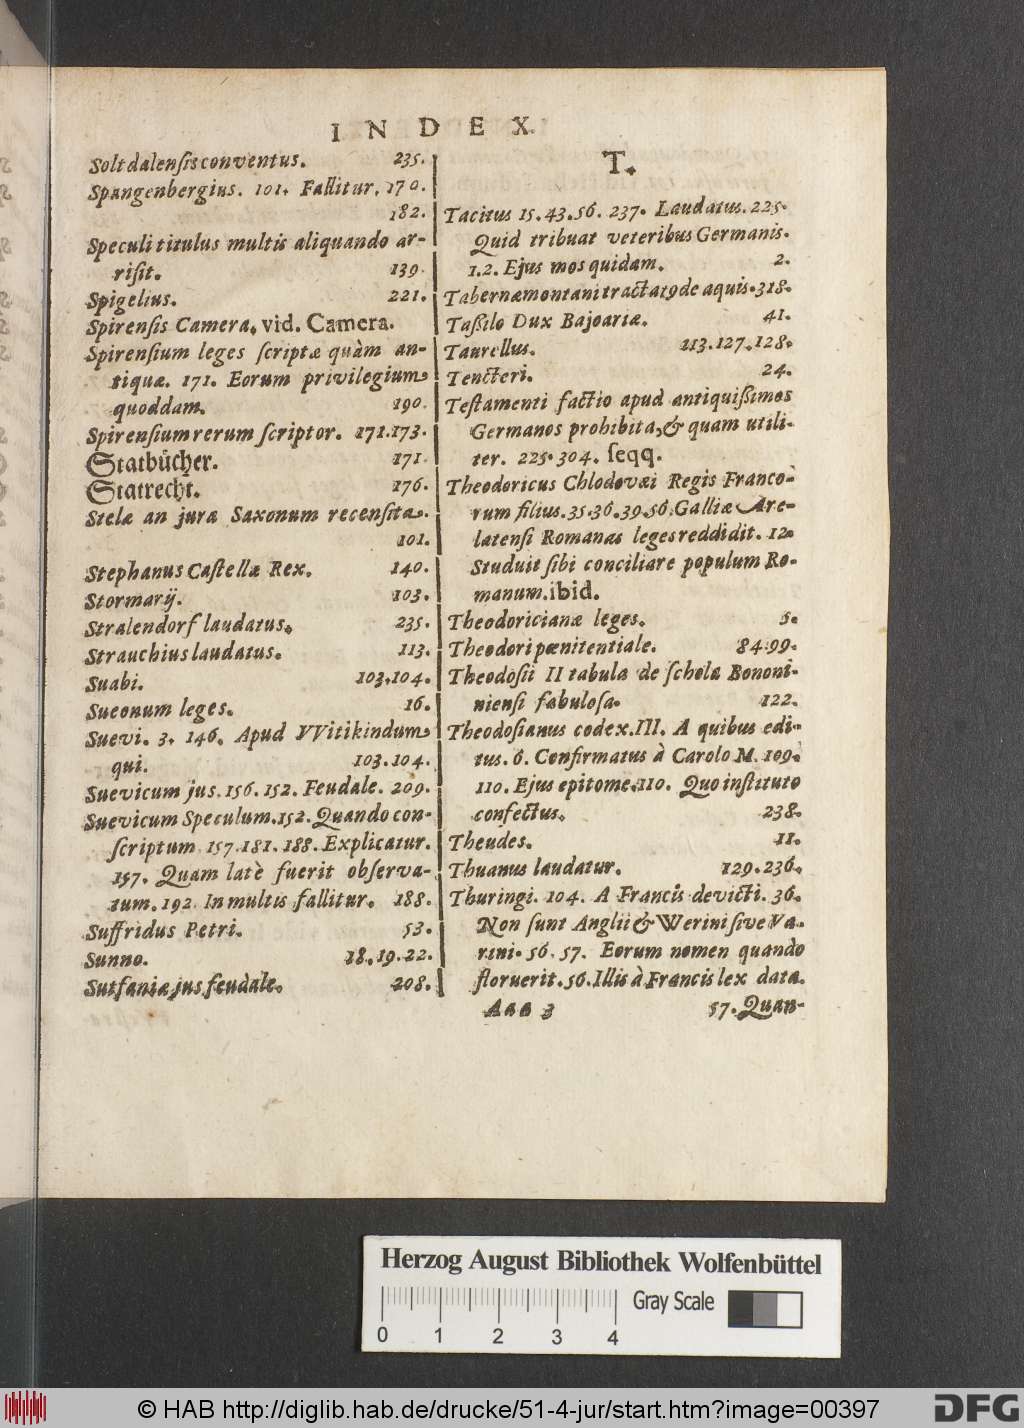 INDEX
Soltdalenſis conventus. 235.
Spangenbergius. 101. Fallitur. 170.
182.
Speculi titulus multis aliquando ar-
riſit. 139.
Spigelius. 221.
Spirenſis Camera, vid. Camera.
Spirenſium leges ſcriptæ quàm an-
tiquæ. 171. Eorum privilegium
quoddam. 190.
Spirenſium rerum ſcriptor. 171.173.
Statbücher. 171.
Statrecht. 176.
Stelæ an jura Saxonum recenſita.
101.
Stephanus Caſtellæ Rex. 140.
Stormarij. 103.
Stralendorf laudatus. 235.
Strauchius laudatus. 113.
Suabi. 103.104.
Sueonum leges. 16.
Suevi. 3. 146. Apud VVitikindum
qui. 103.104.
Suevicum jus. 156. 152. Feudale. 209.
Suevicum Speculum. 152. Quando con-
ſcriptum 157.181.188. Explicatur.
157. Quam latè fuerit obſerva-
tum. 192. In multis fallitur. 188.
Suffridus Petri. 53.
Sunno. 18.19.22.
Sutfaniæ jus feudale. 208.
T.
Tacitus 15.43.56. 237. Laudatus. 225.
Quid tribuat veteribus Germanis.
1.2. Ejus mos quidam. 2.
Tabernæmontani tractatꝰ de aquis. 318.
Taßilo Dux Bajoariæ. 41.
Taurellus. 113.127.128.
Tencteri. 24.
Teſtamenti factio apud antiquißimos
Germanos prohibita, & quam utili-
ter. 225. 304. ſeqq.
Theodoricus Chlodovæi Regis Franco-
rum filius. 35.36.39.56. Galliæ Are-
latenſi Romanas leges reddidit. 12.
Studuit ſibi conciliare populum Ro-
manum. ibid.
Theodoricianæ leges. 5.
Theodori pœnitentiale. 84.99.
Theodoſii II tabula de ſchola Bononi-
nienſi fabuloſa. 122.
Theodoſianus codex. III. A quibus edi-
tus. 6. Confirmatus à Carolo M. 109.
110. Ejus epitome. 110. Quo inſtituto
confectus. 238.
Theudes. 11.
Thuanus laudatur. 129.236.
Thuringi. 104. A Francis devicti. 36.
Non ſunt Anglii & Werini ſive Va-
rini. 56.57. Eorum nomen quando
floruerit. 56. Illis à Francis lex data.
Aaa 3 57. Quan-
Herzog August Bibliothek Wolfenbüttel
Gray Scale
0 1 2 3 4
© HAB http://diglib.hab.de/drucke/51-4-jur/start.htm?image=00397
DFG